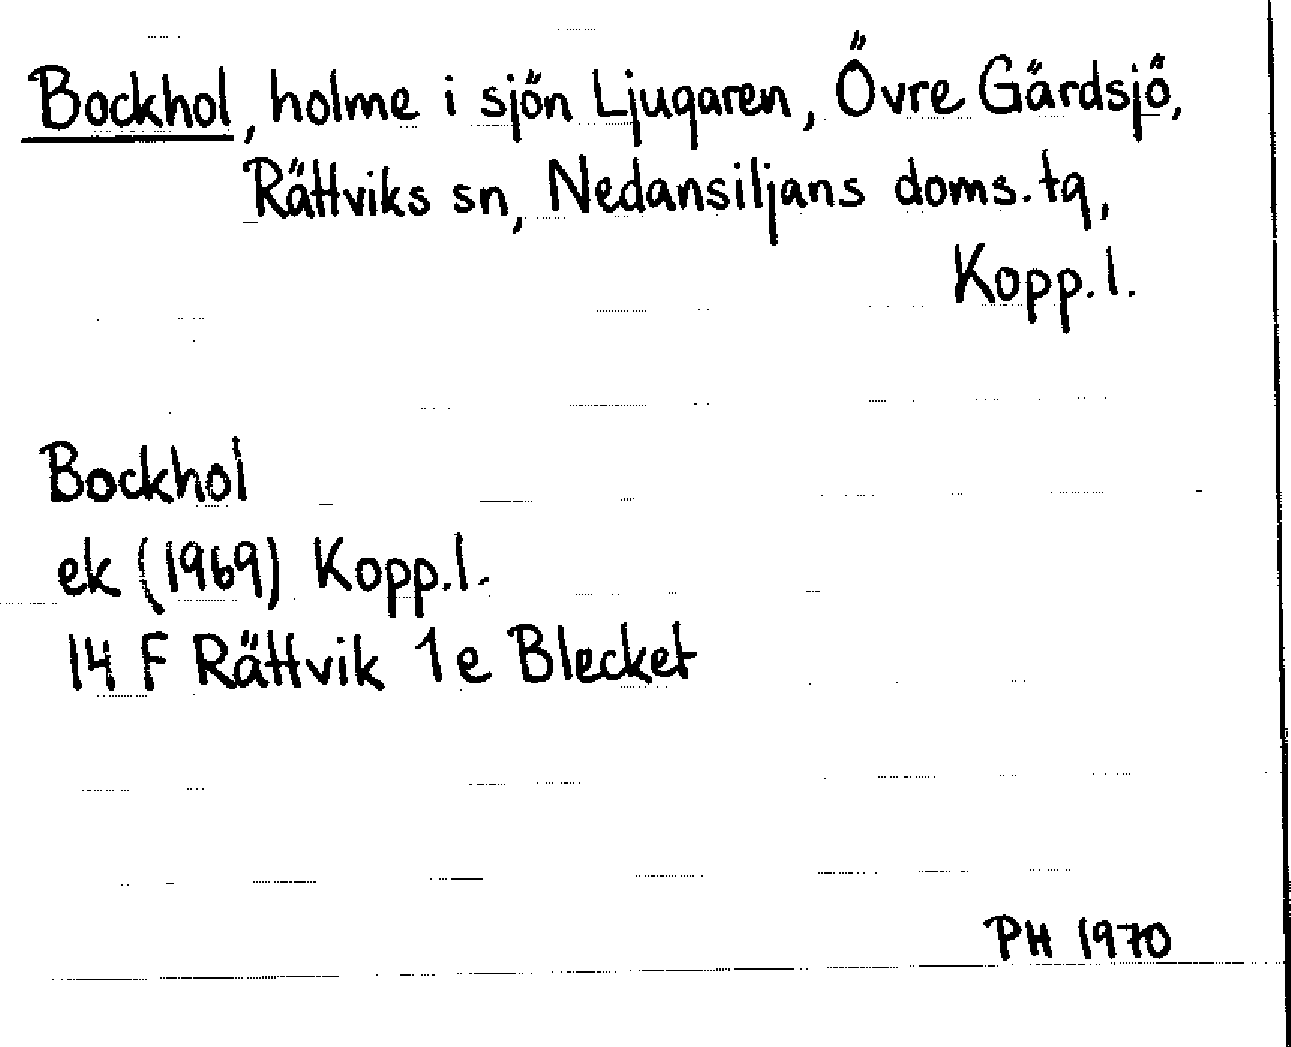 Bockhol, holme i sjön Ljugaren, Övre Gärdsjö,
Rättviks sn, Nedansiljans doms.tg,
Kopp.l.
Bockhol
ek (1969) Kopp.l.
14 F Rättvik 1e Blecket
PH 1970